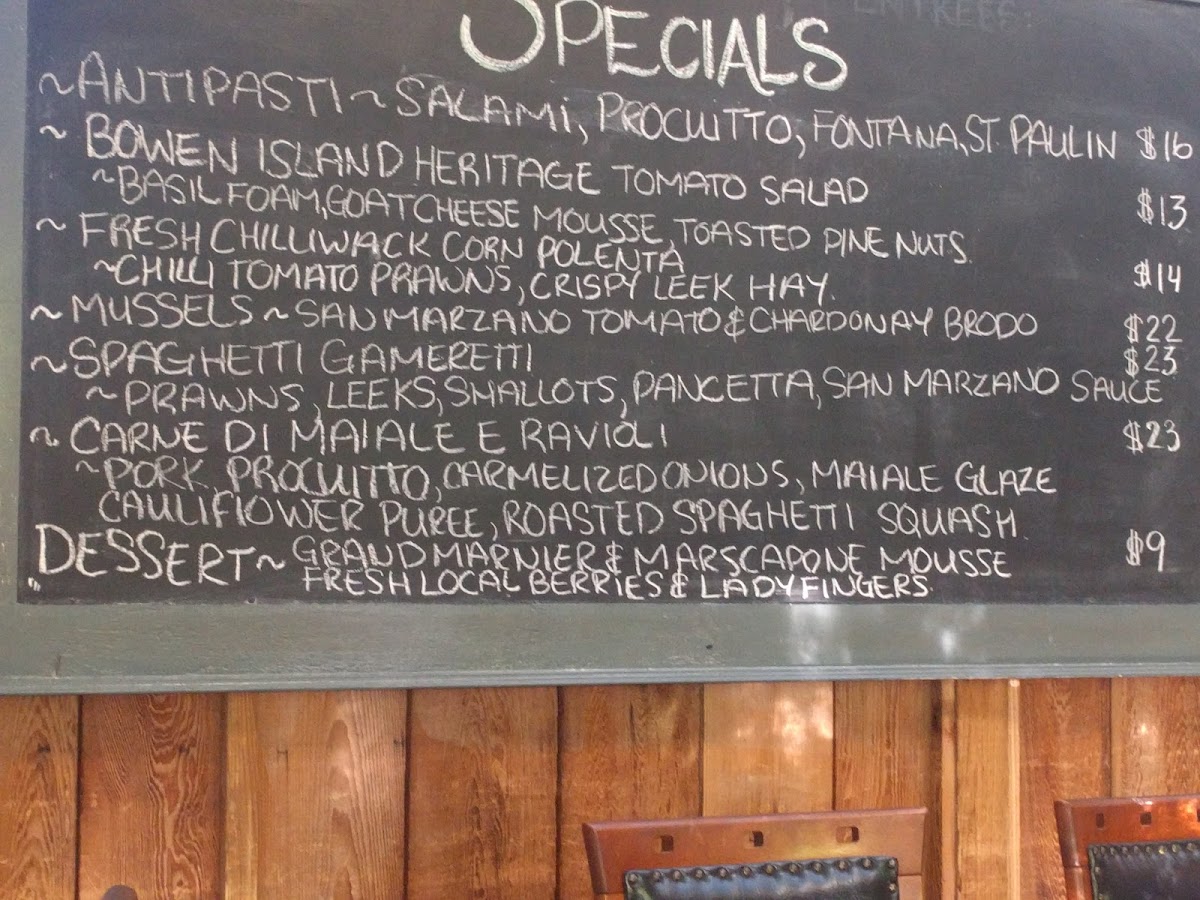 ENTREES:
SPECIALS
~ANTIPASTI~SALAMI, PROCUITTO, FONTANA, ST. PAULIN $16
~BOWEN ISLAND HERITAGE TOMATO SALAD $13
~BASIL FOAM, GOAT CHEESE MOUSSE, TOASTED PINE NUTS.
~FRESH CHILLIWACK CORN POLENTA $14
~CHILLI TOMATO PRAWNS, CRISPY LEEK HAY.
~MUSSELS~SAN MARZANO TOMATO & CHARDONAY BRODO $22
~SPAGHETTI GAMERETTI $23
~PRAWNS, LEEKS, SHALLOTS, PANCETTA, SAN MARZANO SAUCE
~CARNE DI MAIALE E RAVIOLI $23
~PORK, PROCUITTO, CARMELIZED ONIONS, MAIALE GLAZE
CAULIFLOWER PUREE, ROASTED SPAGHETTI SQUASH.
DESSERT~GRAND MARNIER & MARSCAPONE MOUSSE $9
FRESH LOCAL BERRIES & LADYFINGERS.